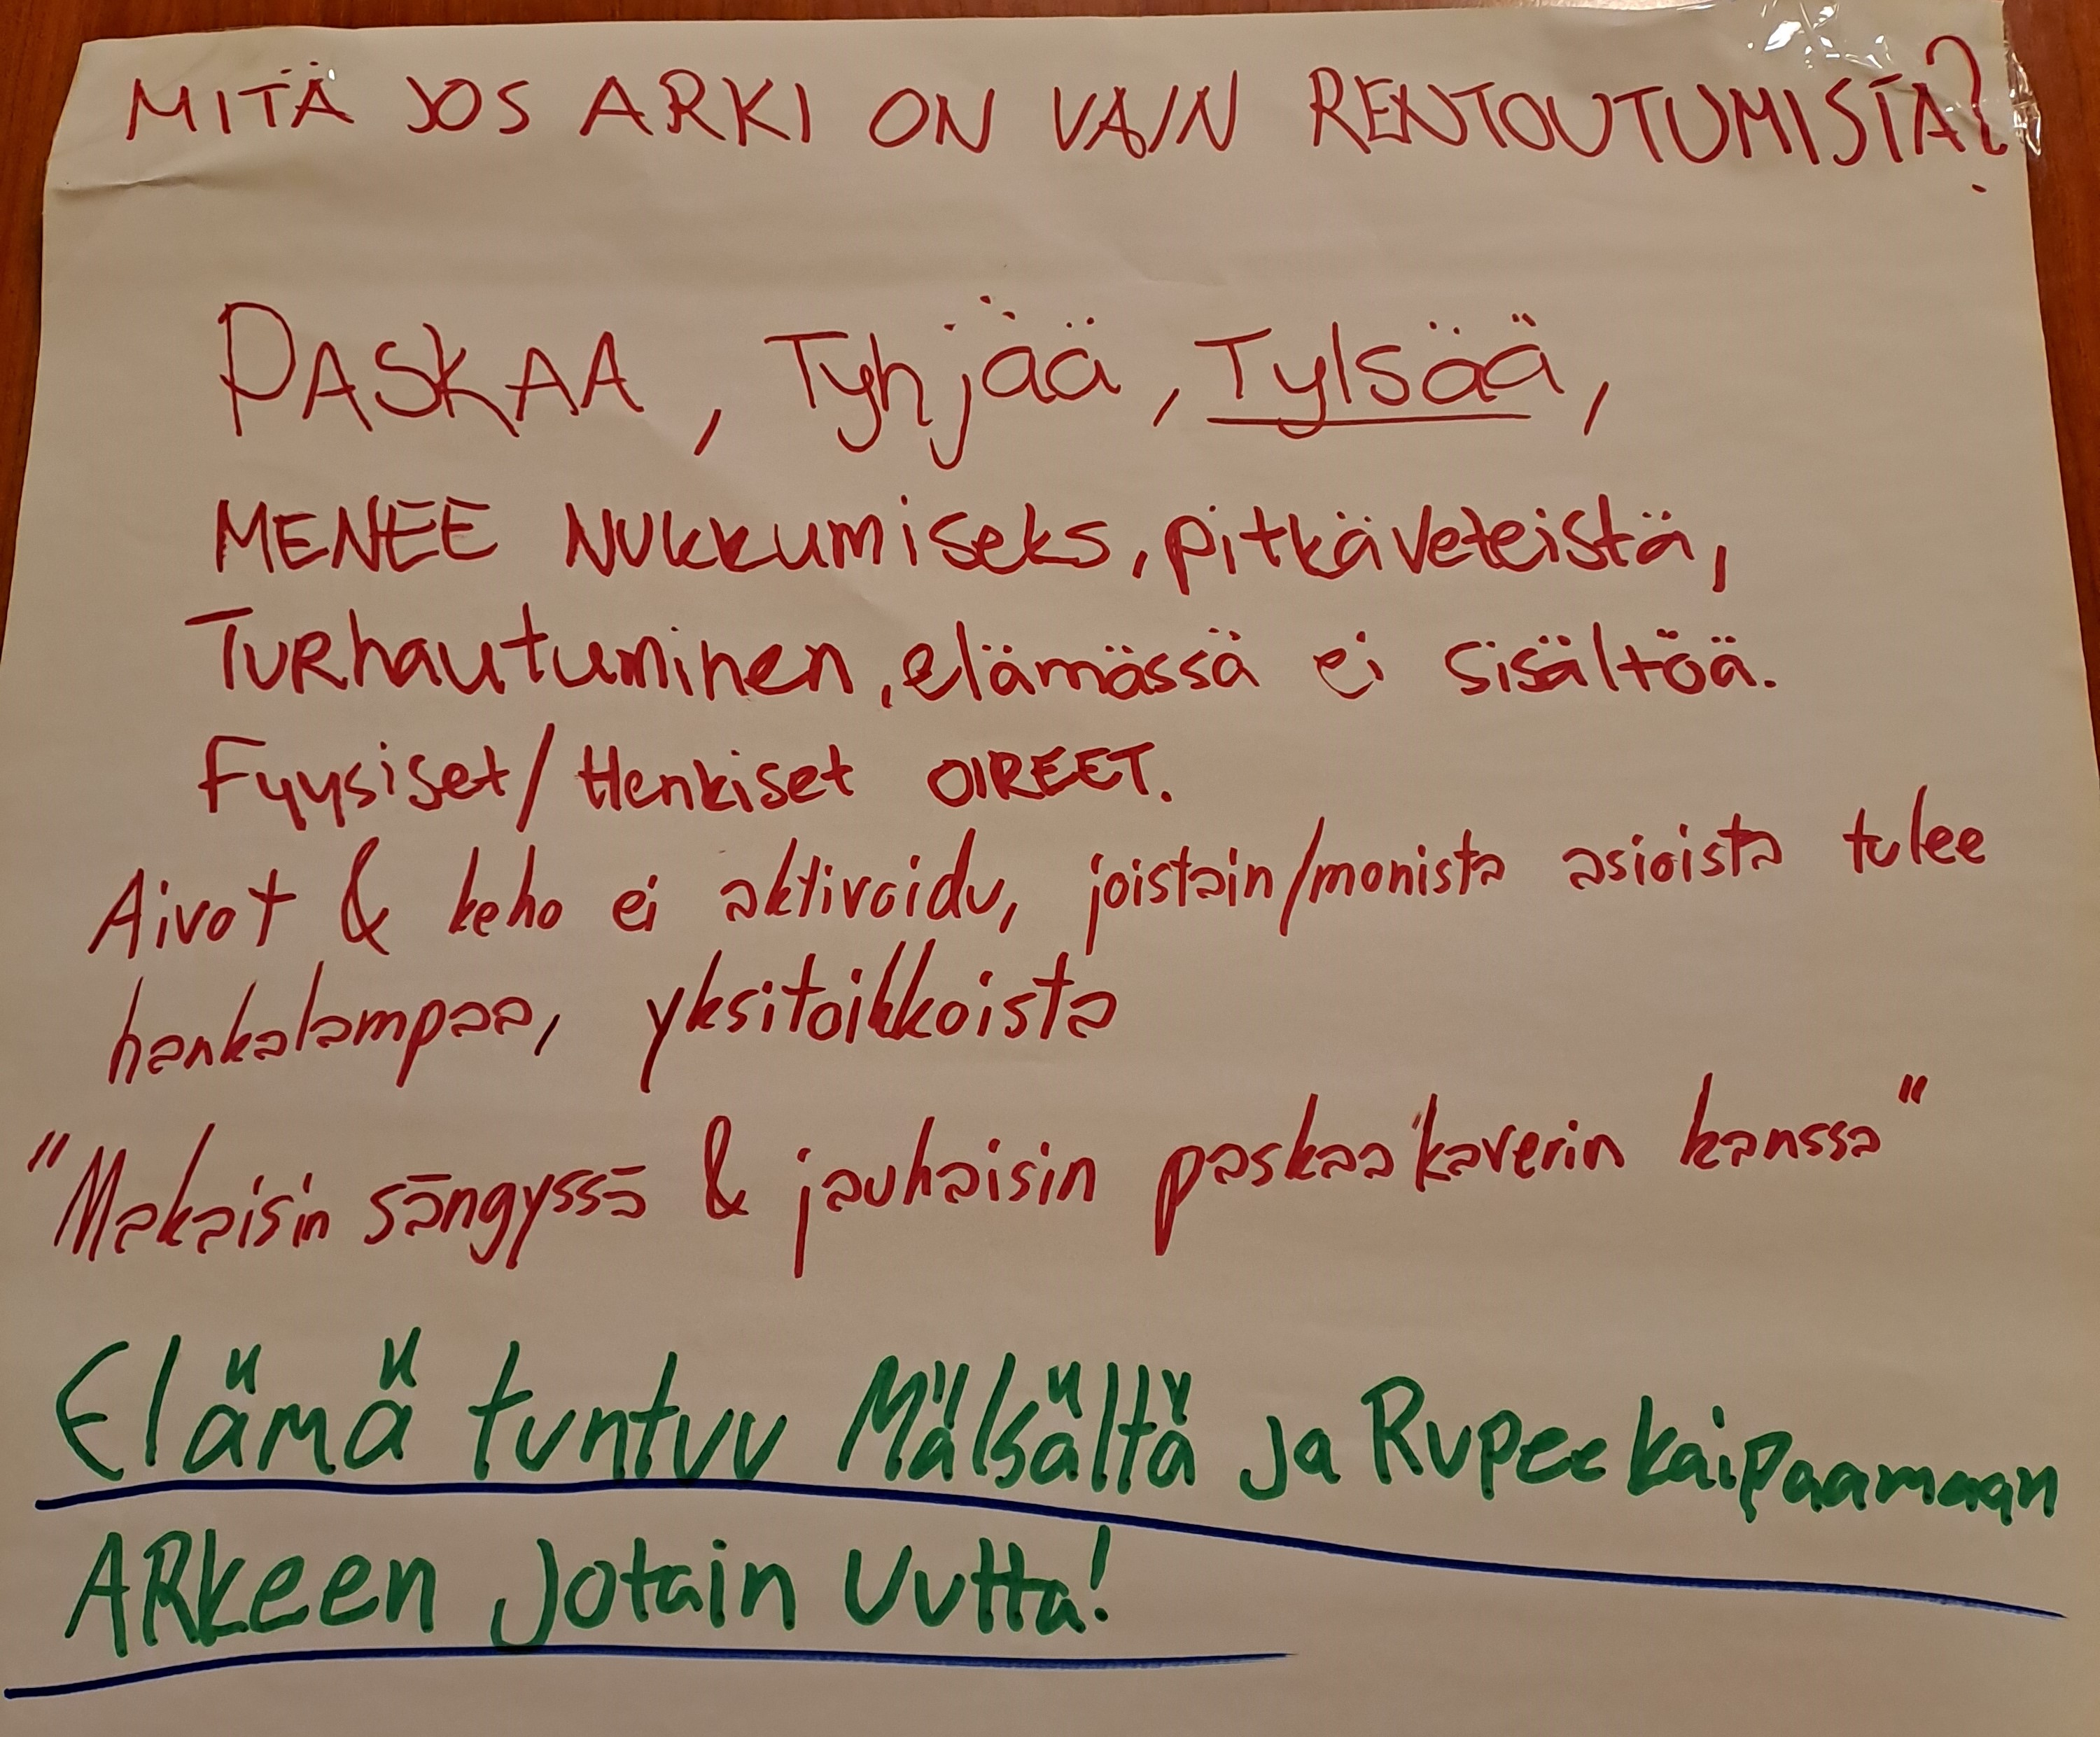 MITÄ JOS ARKI ON VAIN RENTOUTUMISTA?
PASKAA, Tyhjää, Tylsää,
MENEE NUKKUMISEKS, pitkäveteistä,
TURHAUTUMINEN, elämässä ei sisältöä.
Fyysiset/Henkiset OIREET.
Aivot & keho ei aktivoidu, joistain/monista asioista tulee
hankalampaa, yksitoikkoista
"Makaisin sängyssä & jauhaisin paskaa kaverin kanssa"
Elämä tuntuu Mälsältä ja Rupee kaipaamaan
ARkeen Jotain Uutta!